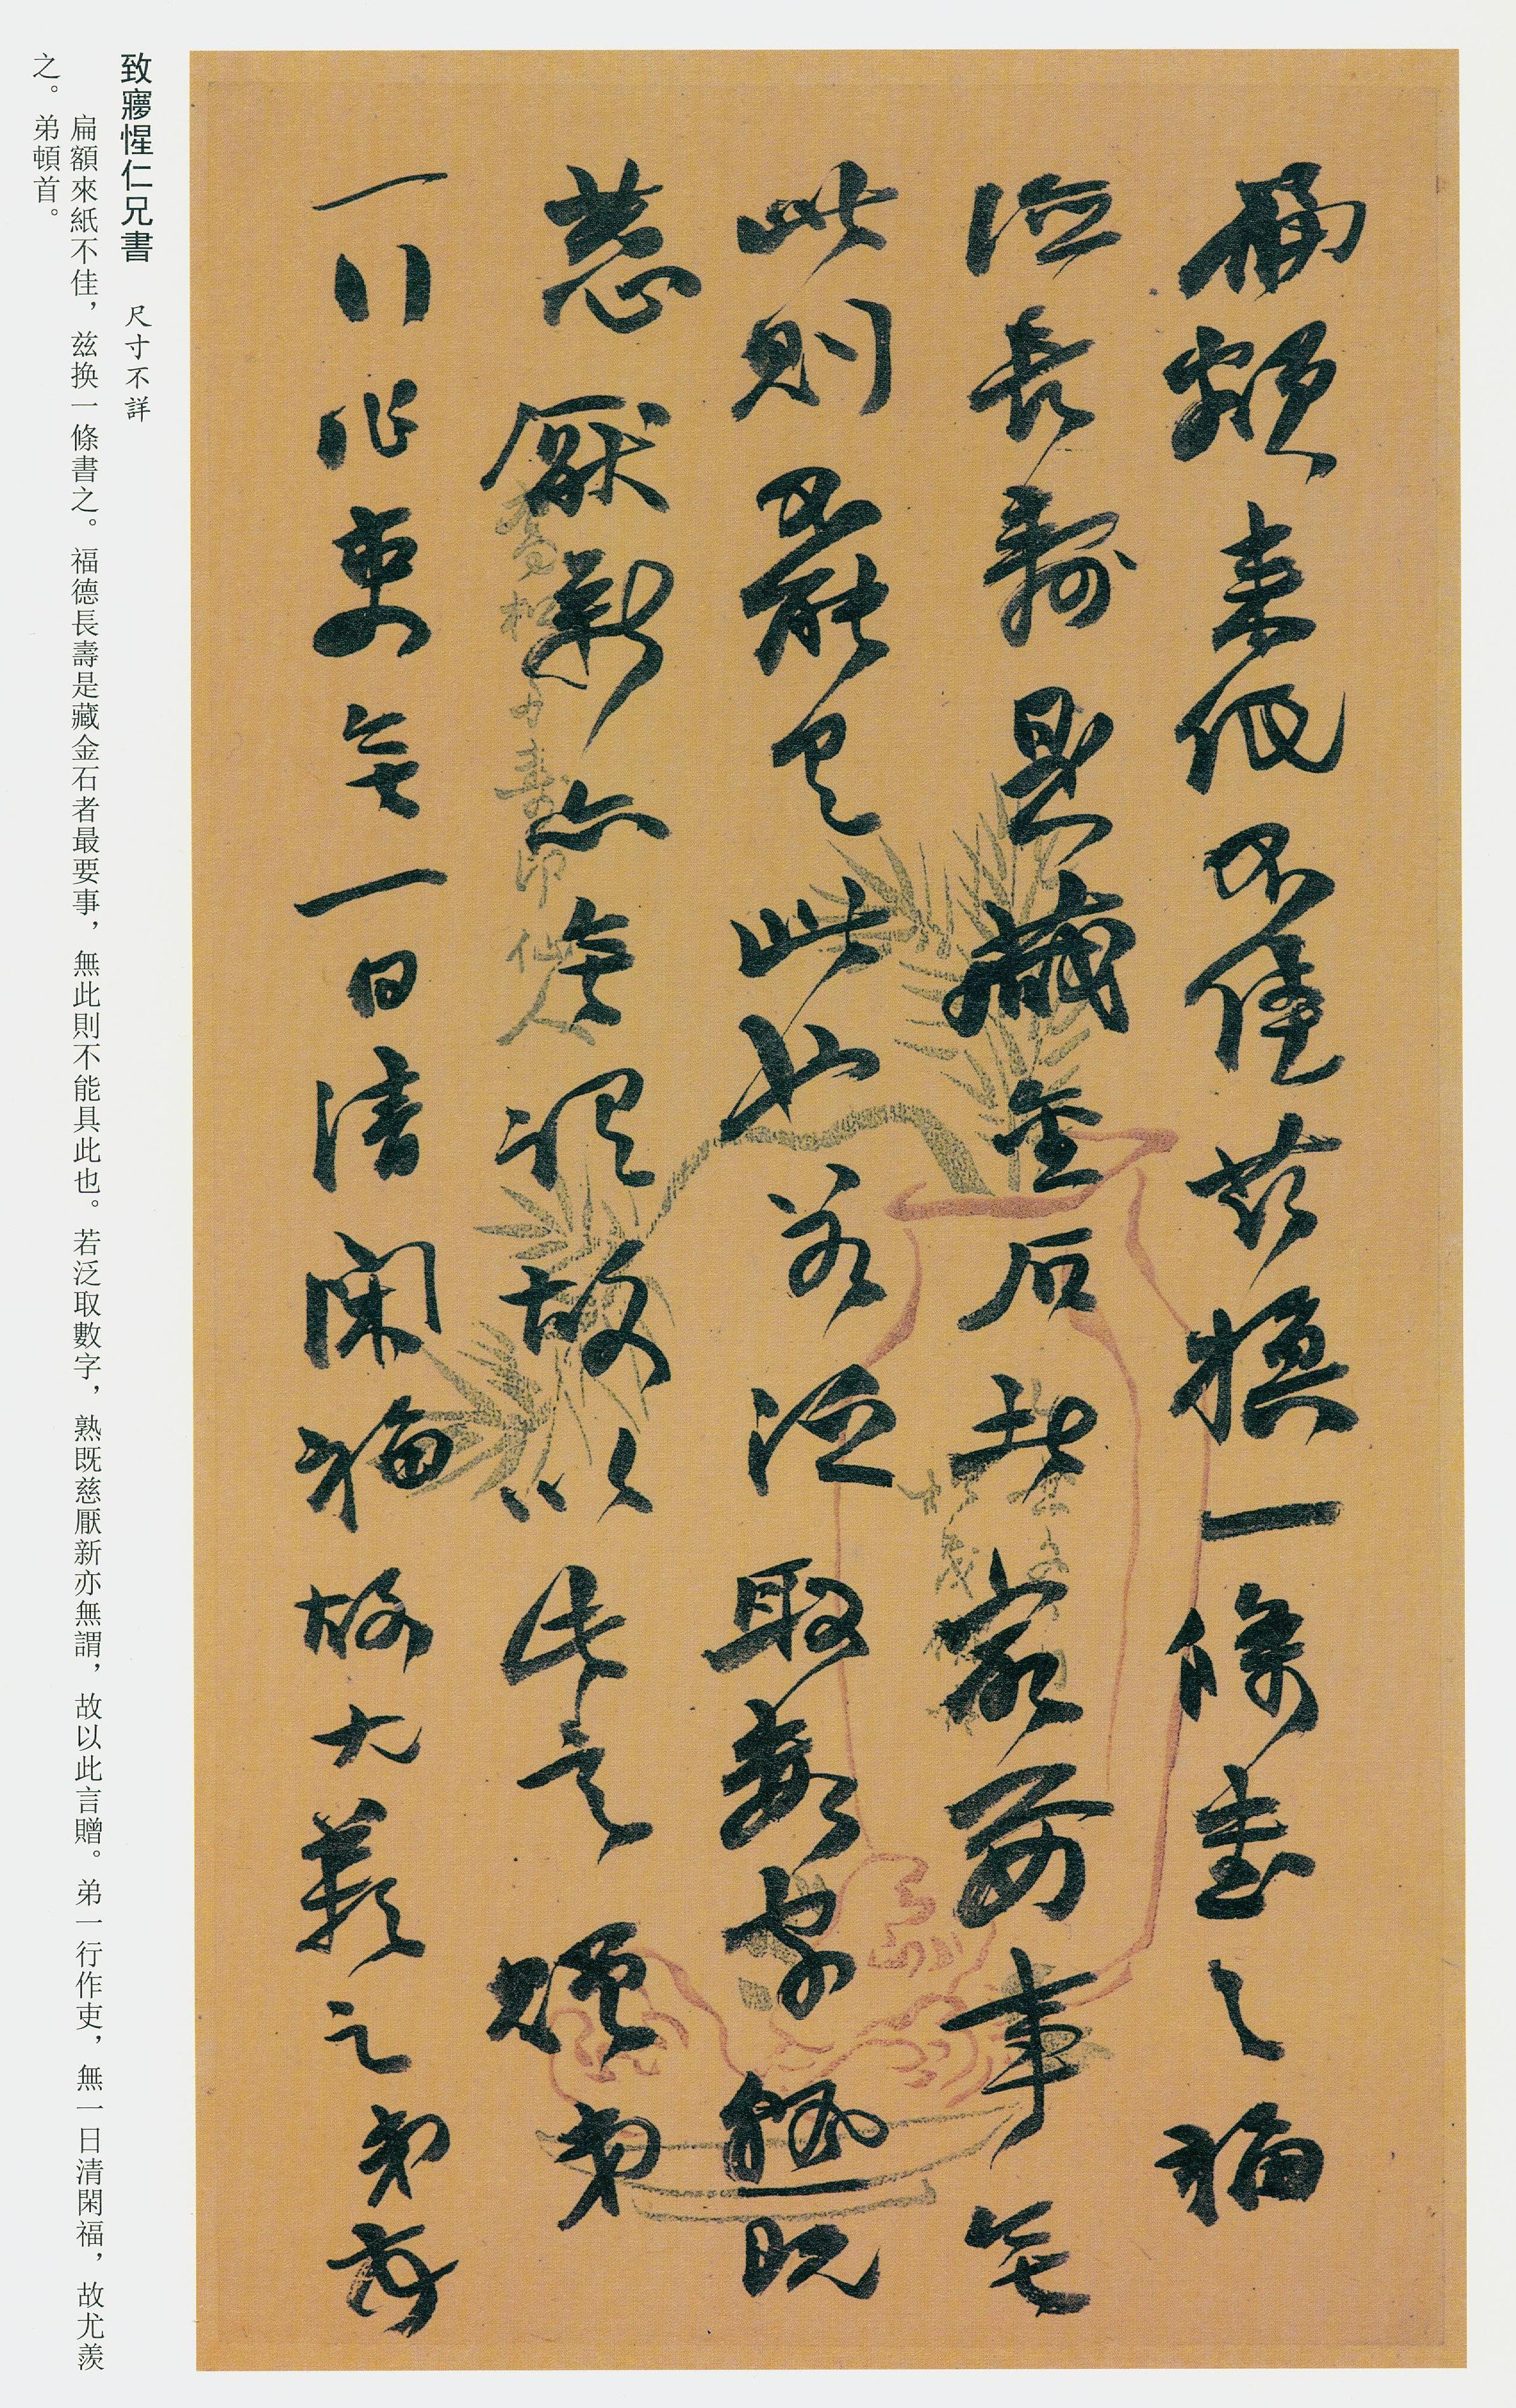 扁額來紙不佳茲換一條書之福
德長壽是藏金石者最要事無
此則不能具此也若泛取數字熟既
慈厭新亦無謂故以此言贈弟
一行作吏無一日清閑福故尤羨之弟頓首
致寱惺仁兄書 尺寸不詳
扁額來紙不佳，兹换一條書之。福德長壽是藏金石者最要事，無此則不能具此也。若泛取數字，熟既慈厭新亦無謂，故以此言贈。弟一行作吏，無一日清閑福，故尤羨
之。弟頓首。